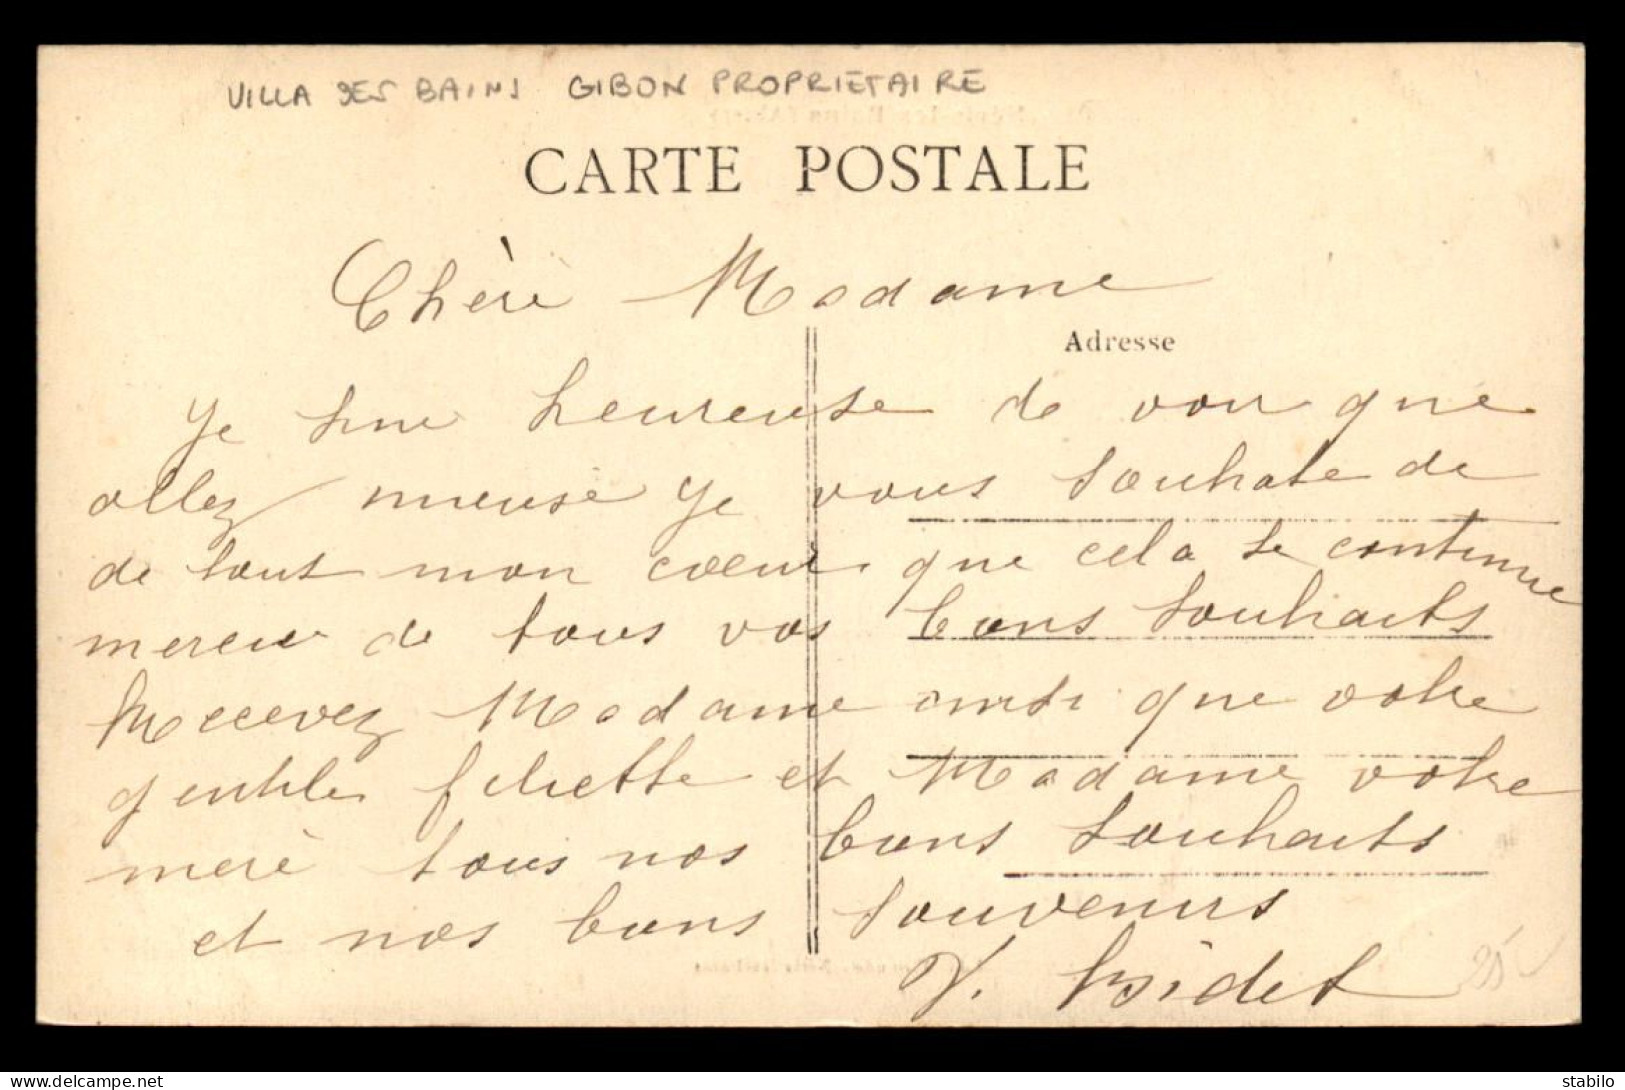 VILLA DES BAINS GIBON PROPRIETAIRE
CARTE POSTALE
Chère Madame
Adresse
Je sui heureuse de voir que
allez mieuse Je vous souhate de
de tout mon cœur que cela se continue
mercie de tous vos bons souhaits
Recevez Madame ainsi que votre
gentile filiette et Madame votre
merè tous nos bons souhaits
et nos bons souvenirs
V. Bidet
25
stabilo